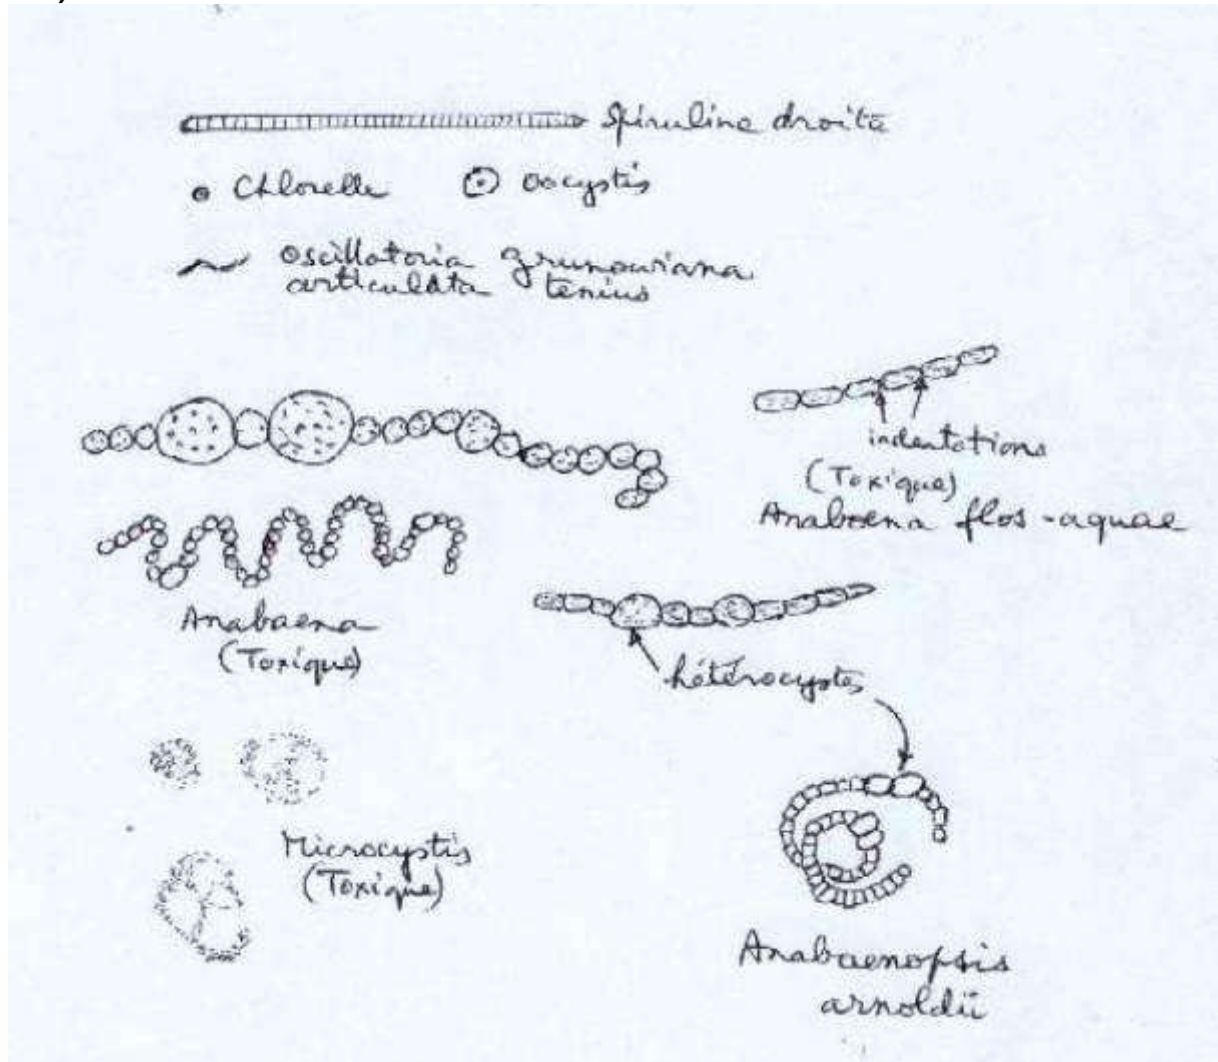 Spiruline droite
Chlorelle
Oocystis
oscillatoria grunowiana
articulata tenius
indentations
(Toxique)
Anabaena flos-aquae
Anabaena
(Toxique)
hétérocystes
Microcystis
(Toxique)
Anabaenopsis
arnoldii